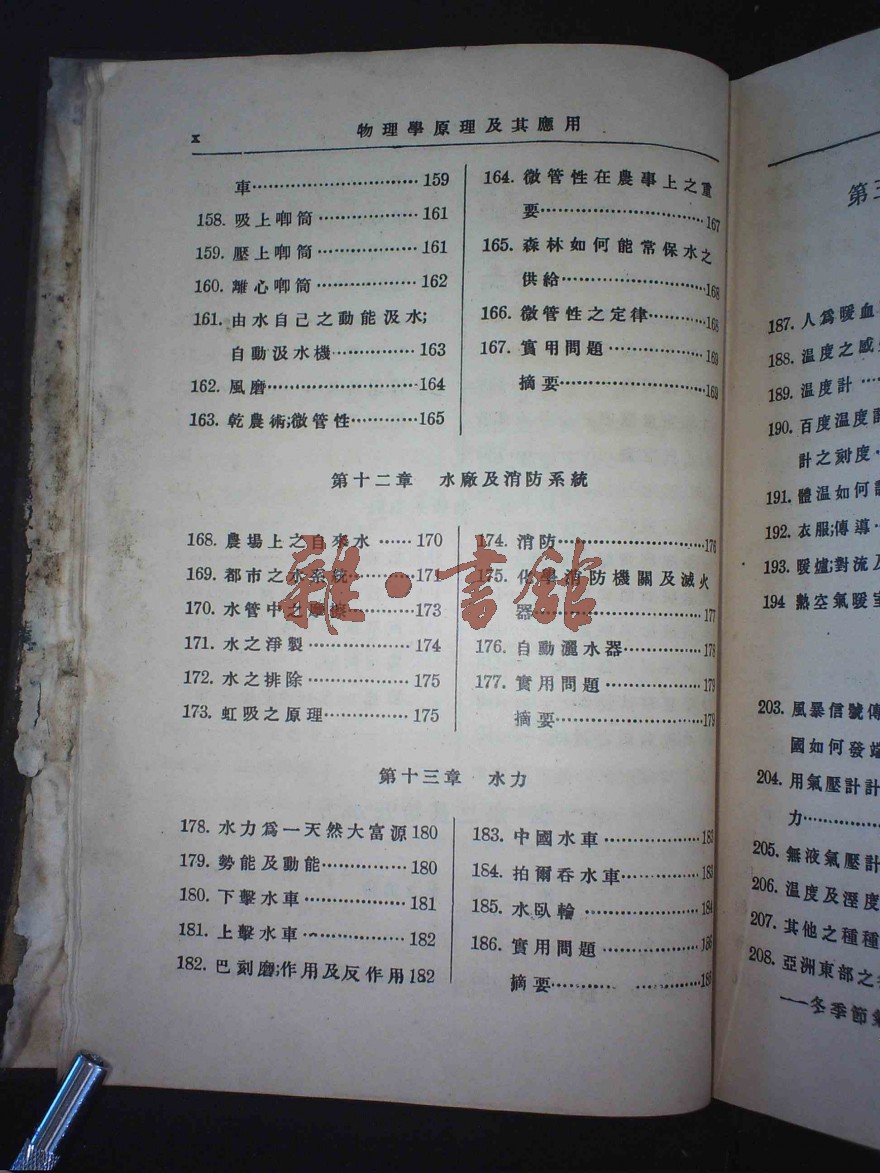 x
物理學原理及其應用
車······························ 159
158. 吸上唧筒 ·················· 161
159. 壓上唧筒 ·················· 161
160. 離心唧筒 ·················· 162
161. 由水自己之動能汲水;
自動汲水機··············· 163
162. 風磨··························· 164
163. 乾農術;微管性············ 165
164. 微管性在農事上之重
要······························ 167
165. 森林如何能常保水之
供給·························· 168
166. 微管性之定律·········· 168
167. 實用問題 ················· 169
摘要·························· 169
第十二章 水廠及消防系統
168. 農場上之自來水 ······ 170
169. 都市之水系統············ 171
170. 水管中之摩擦············ 173
171. 水之淨製 ·················· 174
172. 水之排除 ·················· 175
173. 虹吸之原理··············· 175
174. 消防·························· 176
175. 化學消防機關及滅火
器······························ 177
176. 自動灑水器·············· 178
177. 實用問題 ················· 179
摘要·························· 179
第十三章 水力
178. 水力爲一天然大富源 180
179. 勢能及動能··············· 180
180. 下擊水車 ·················· 181
181. 上擊水車 ·················· 182
182. 巴刻磨;作用及反作用 182
183. 中國水車 ················· 182
184. 拍爾吞水車·············· 183
185. 水臥輪 ···················· 184
186. 實用問題 ·················
摘要··························
雜·書館
第三
187. 人爲暖血
188. 温度之感
189. 温度計 ···
190. 百度温度計
計之刻度·
191. 體温如何
192. 衣服;傳導·
193. 暖爐;對流及
194 熱空氣暖室
203. 風暴信號傳
國如何發
204. 用氣壓計計
力··········
205. 無液氣壓計
206. 温度及溼度
207. 其他之種種
208. 亞洲東部之
——冬季節